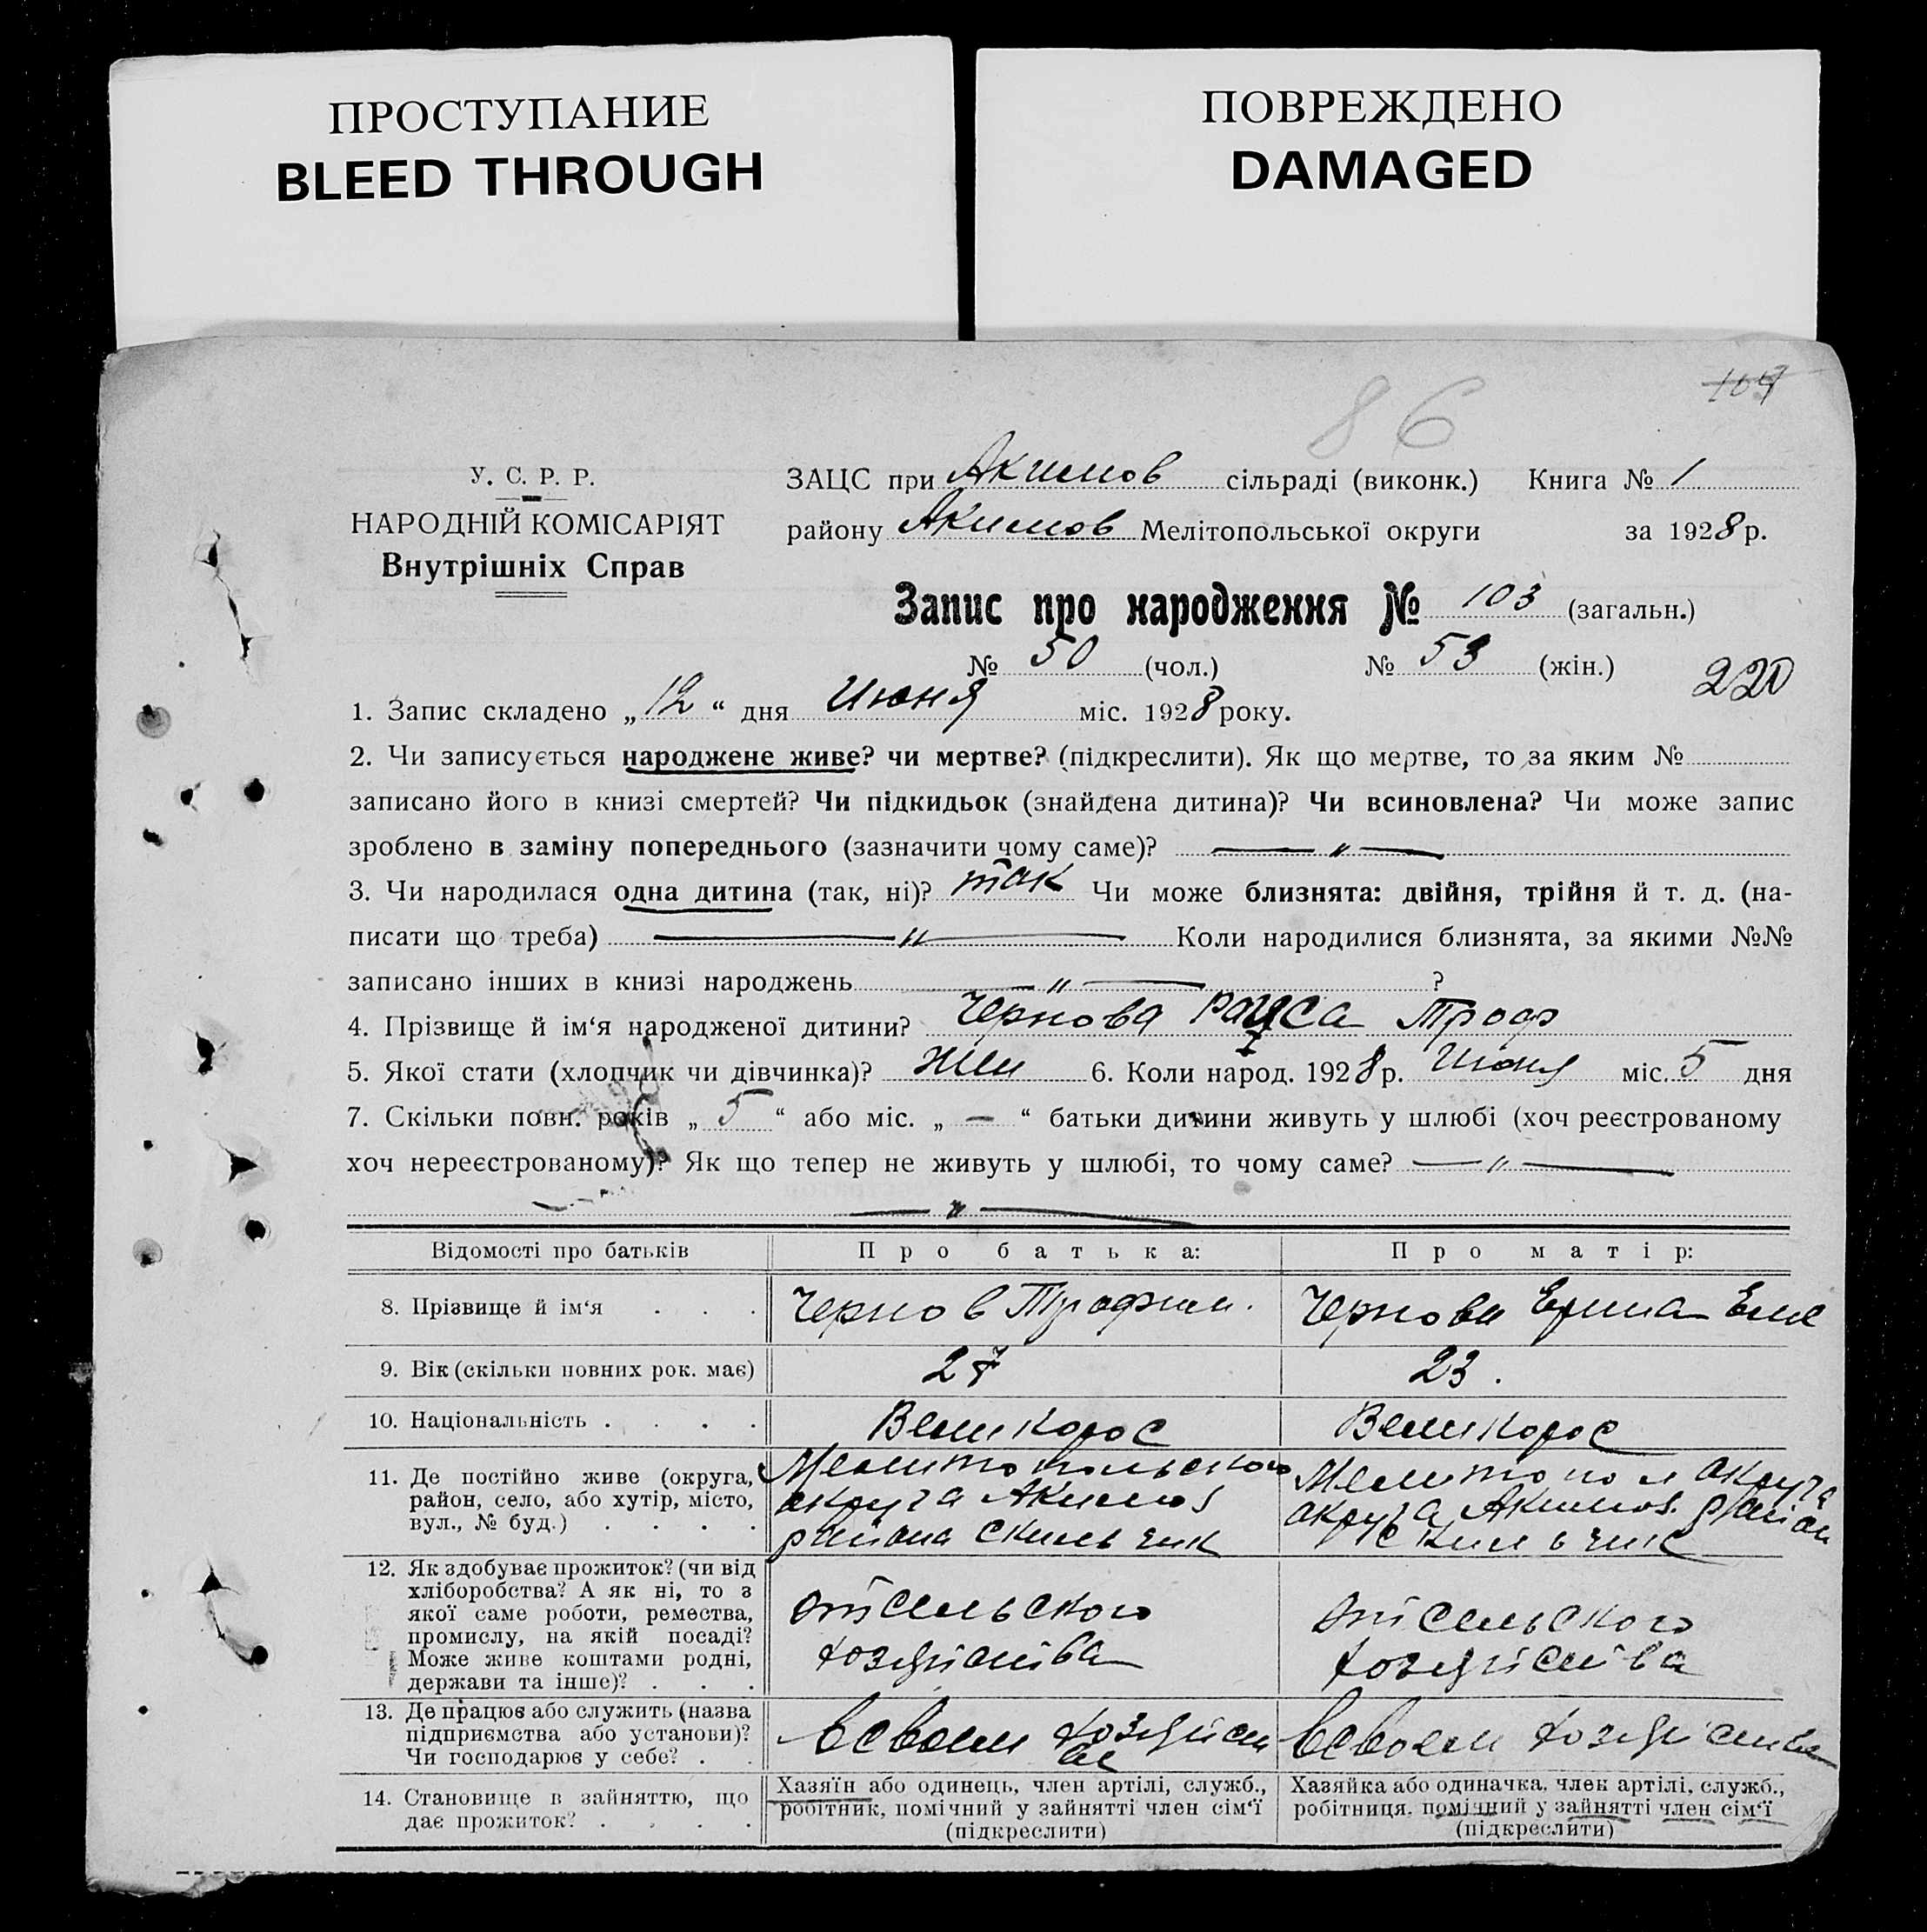 ПРОСТУПАНИЕ
BLEED THROUGH
ПОВРЕЖДЕНО
DAMAGED
86
У. С. Р. Р.
НАРОДНІЙ КОМІСАРІЯТ
Внутрішніх Справ
ЗАЦС при Акимов сільраді (виконк.) Книга № 1
району Акимов Мелітопольської округи за 1928 р.
Запис про народження № 103 (загальн.)
№ 50 (чол.) № 53 (жін.)
220
1. Запис складено „12“ дня Июня міс. 1928 року.
2. Чи записується народжене живе? чи мертве? (підкреслити). Як що мертве, то за яким №
записано його в книзі смертей? Чи підкидьок (знайдена дитина)? Чи всиновлена? Чи може запис
зроблено в заміну попереднього (зазначити чому саме)? — „ —
3. Чи народилася одна дитина (так, ні)? так Чи може близнята: двійня, трійня й т. д. (на-
писати що треба) — „ — Коли народилися близнята, за якими №№
записано інших в книзі народжень — „ — ?
4. Прізвище й ім‘я народженої дитини? Чернова Раиса Троф
5. Якої стати (хлопчик чи дівчинка)? жен 6. Коли народ. 1928 р. Июня міс. 5 дня
7. Скільки повн. років „5“ або міс. „—“ батьки дитини живуть у шлюбі (хоч реєстрованому
хоч нереєстрованому)? Як що тепер не живуть у шлюбі, то чому саме? — „ —
— „ —
Відомості про батьків Про батька: Про матір:
8. Прізвище й ім‘я . . . Чернов Трофим. Чернова
9. Вік (скільки повних рок. має) 27 23.
10. Національність . . . . Великорос Великорос
11. Де постійно живе (округа, район, село, або хутір, місто, вул., № буд.) . . . .
Мелитопольского
округа Акимов
района Скельчик
Мелитопол округа
округа Акимов. район
Скельчик
12. Як здобуває прожиток? (чи від хліборобства? А як ні, то з якої саме роботи, ремества, промислу, на якій посаді? Може живе коштами родні, держави та інше)? . . .
от сельского
хозяйства
от сельского
хозяйства
13. Де працює або служить (назва підприємства або установи)? Чи господарює у себе? . .
В своем хозяйст
ве
В своем хозяйстве
14. Становище в зайняттю, що дає прожиток? . . . .
Хазяїн або одинець, член артілі, служб.,
робітник, помічний у зайнятті член сім‘ї
(підкреслити)
Хазяйка або одиначка, член артілі, служб.,
робітниця, помічний у зайнятті член сім‘ї
(підкреслити)